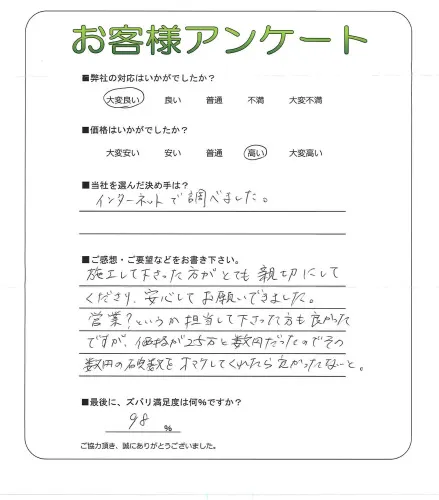 お客様アンケート
■弊社の対応はいかがでしたか?
大変良い 良い 普通 不満 大変不満
■価格はいかがでしたか?
大変安い 安い 普通 高い 大変高い
■当社を選んだ決め手は?
インターネットで調べました。
■ご感想・ご要望などをお書き下さい。
施工して下さった方がとても親切にして
くださり、安心してお願いできました。
営業?というか担当して下さった方も良かった
ですが、価格が25万と数円だったのでその
数円の端数をオマケしてくれたら良かったなと。
■最後に、ズバリ満足度は何%ですか?
98 %
ご協力頂き、誠にありがとうございました。